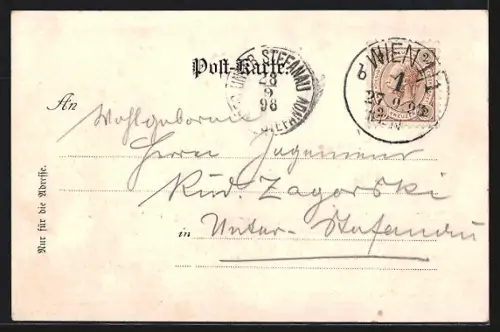 Post-Karte.
UNTER STEFANAU
28
9
98
WIEN
1
27
An
Wohlgeboren
Herrn Ingenieur
Rud. Zagorski
in Unter-Stefanau
Nur für die Adresse.